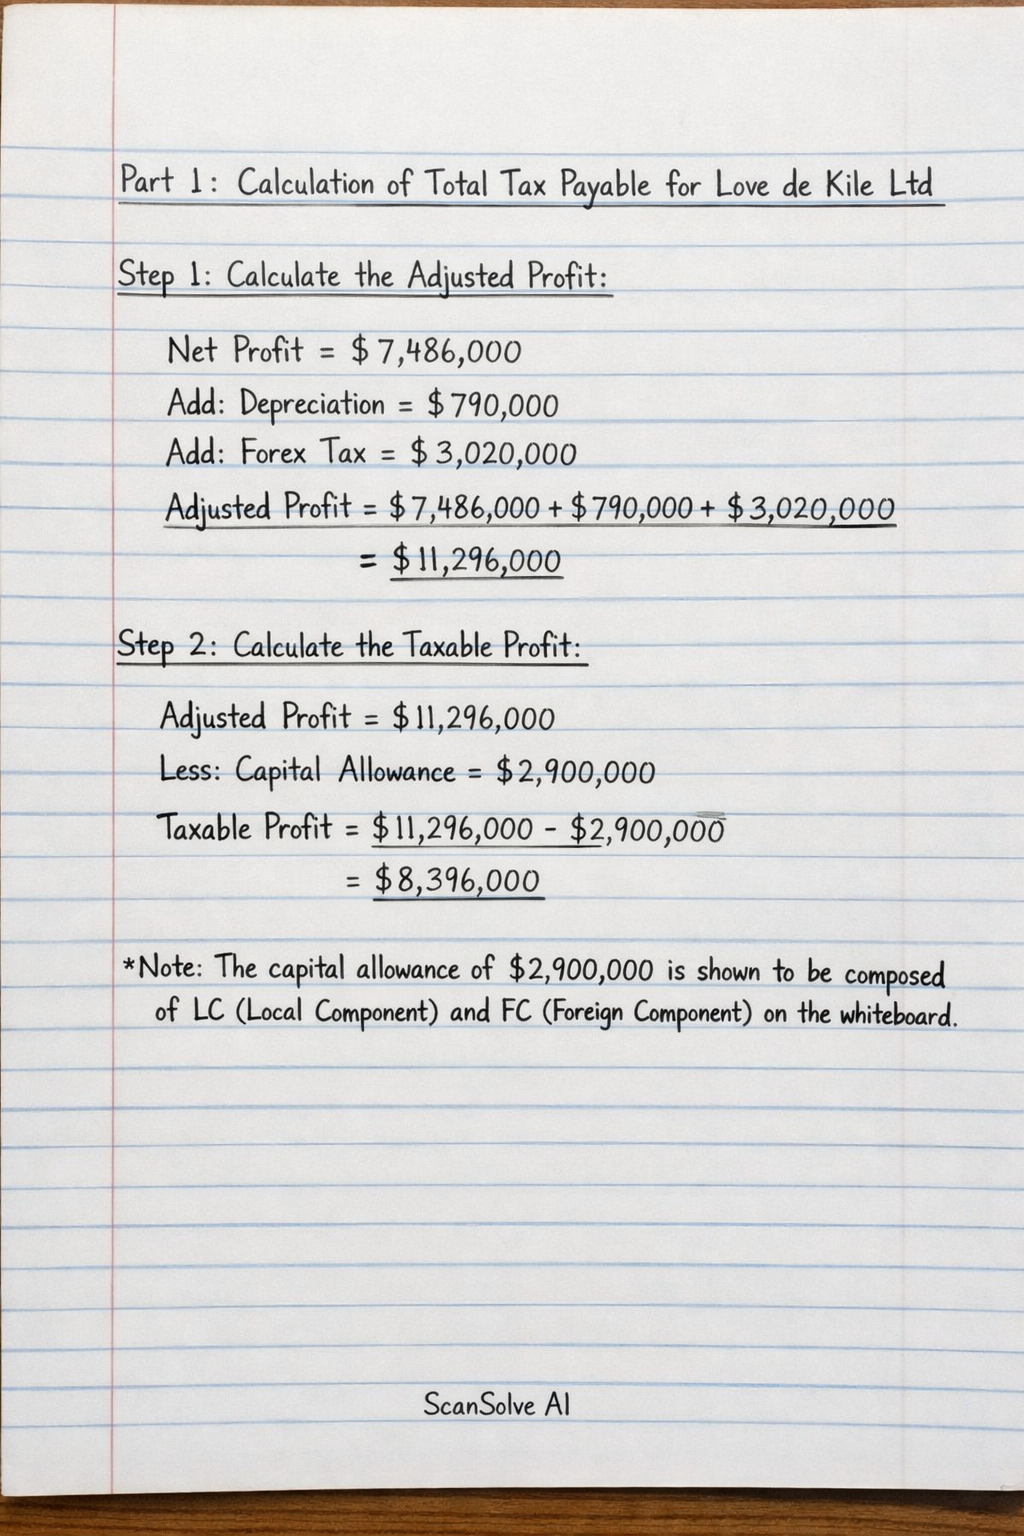 Part 1: Calculation of Total Tax Payable for Love de Kile Ltd
Step 1: Calculate the Adjusted Profit:
Net Profit = $7,486,000
Add: Depreciation = $790,000
Add: Forex Tax = $3,020,000
Adjusted Profit = $7,486,000 + $790,000 + $3,020,000
= $11,296,000
Step 2: Calculate the Taxable Profit:
Adjusted Profit = $11,296,000
Less: Capital Allowance = $2,900,000
Taxable Profit = $11,296,000 - $2,900,000
= $8,396,000
*Note: The capital allowance of $2,900,000 is shown to be composed
of LC (Local Component) and FC (Foreign Component) on the whiteboard.
ScanSolve AI